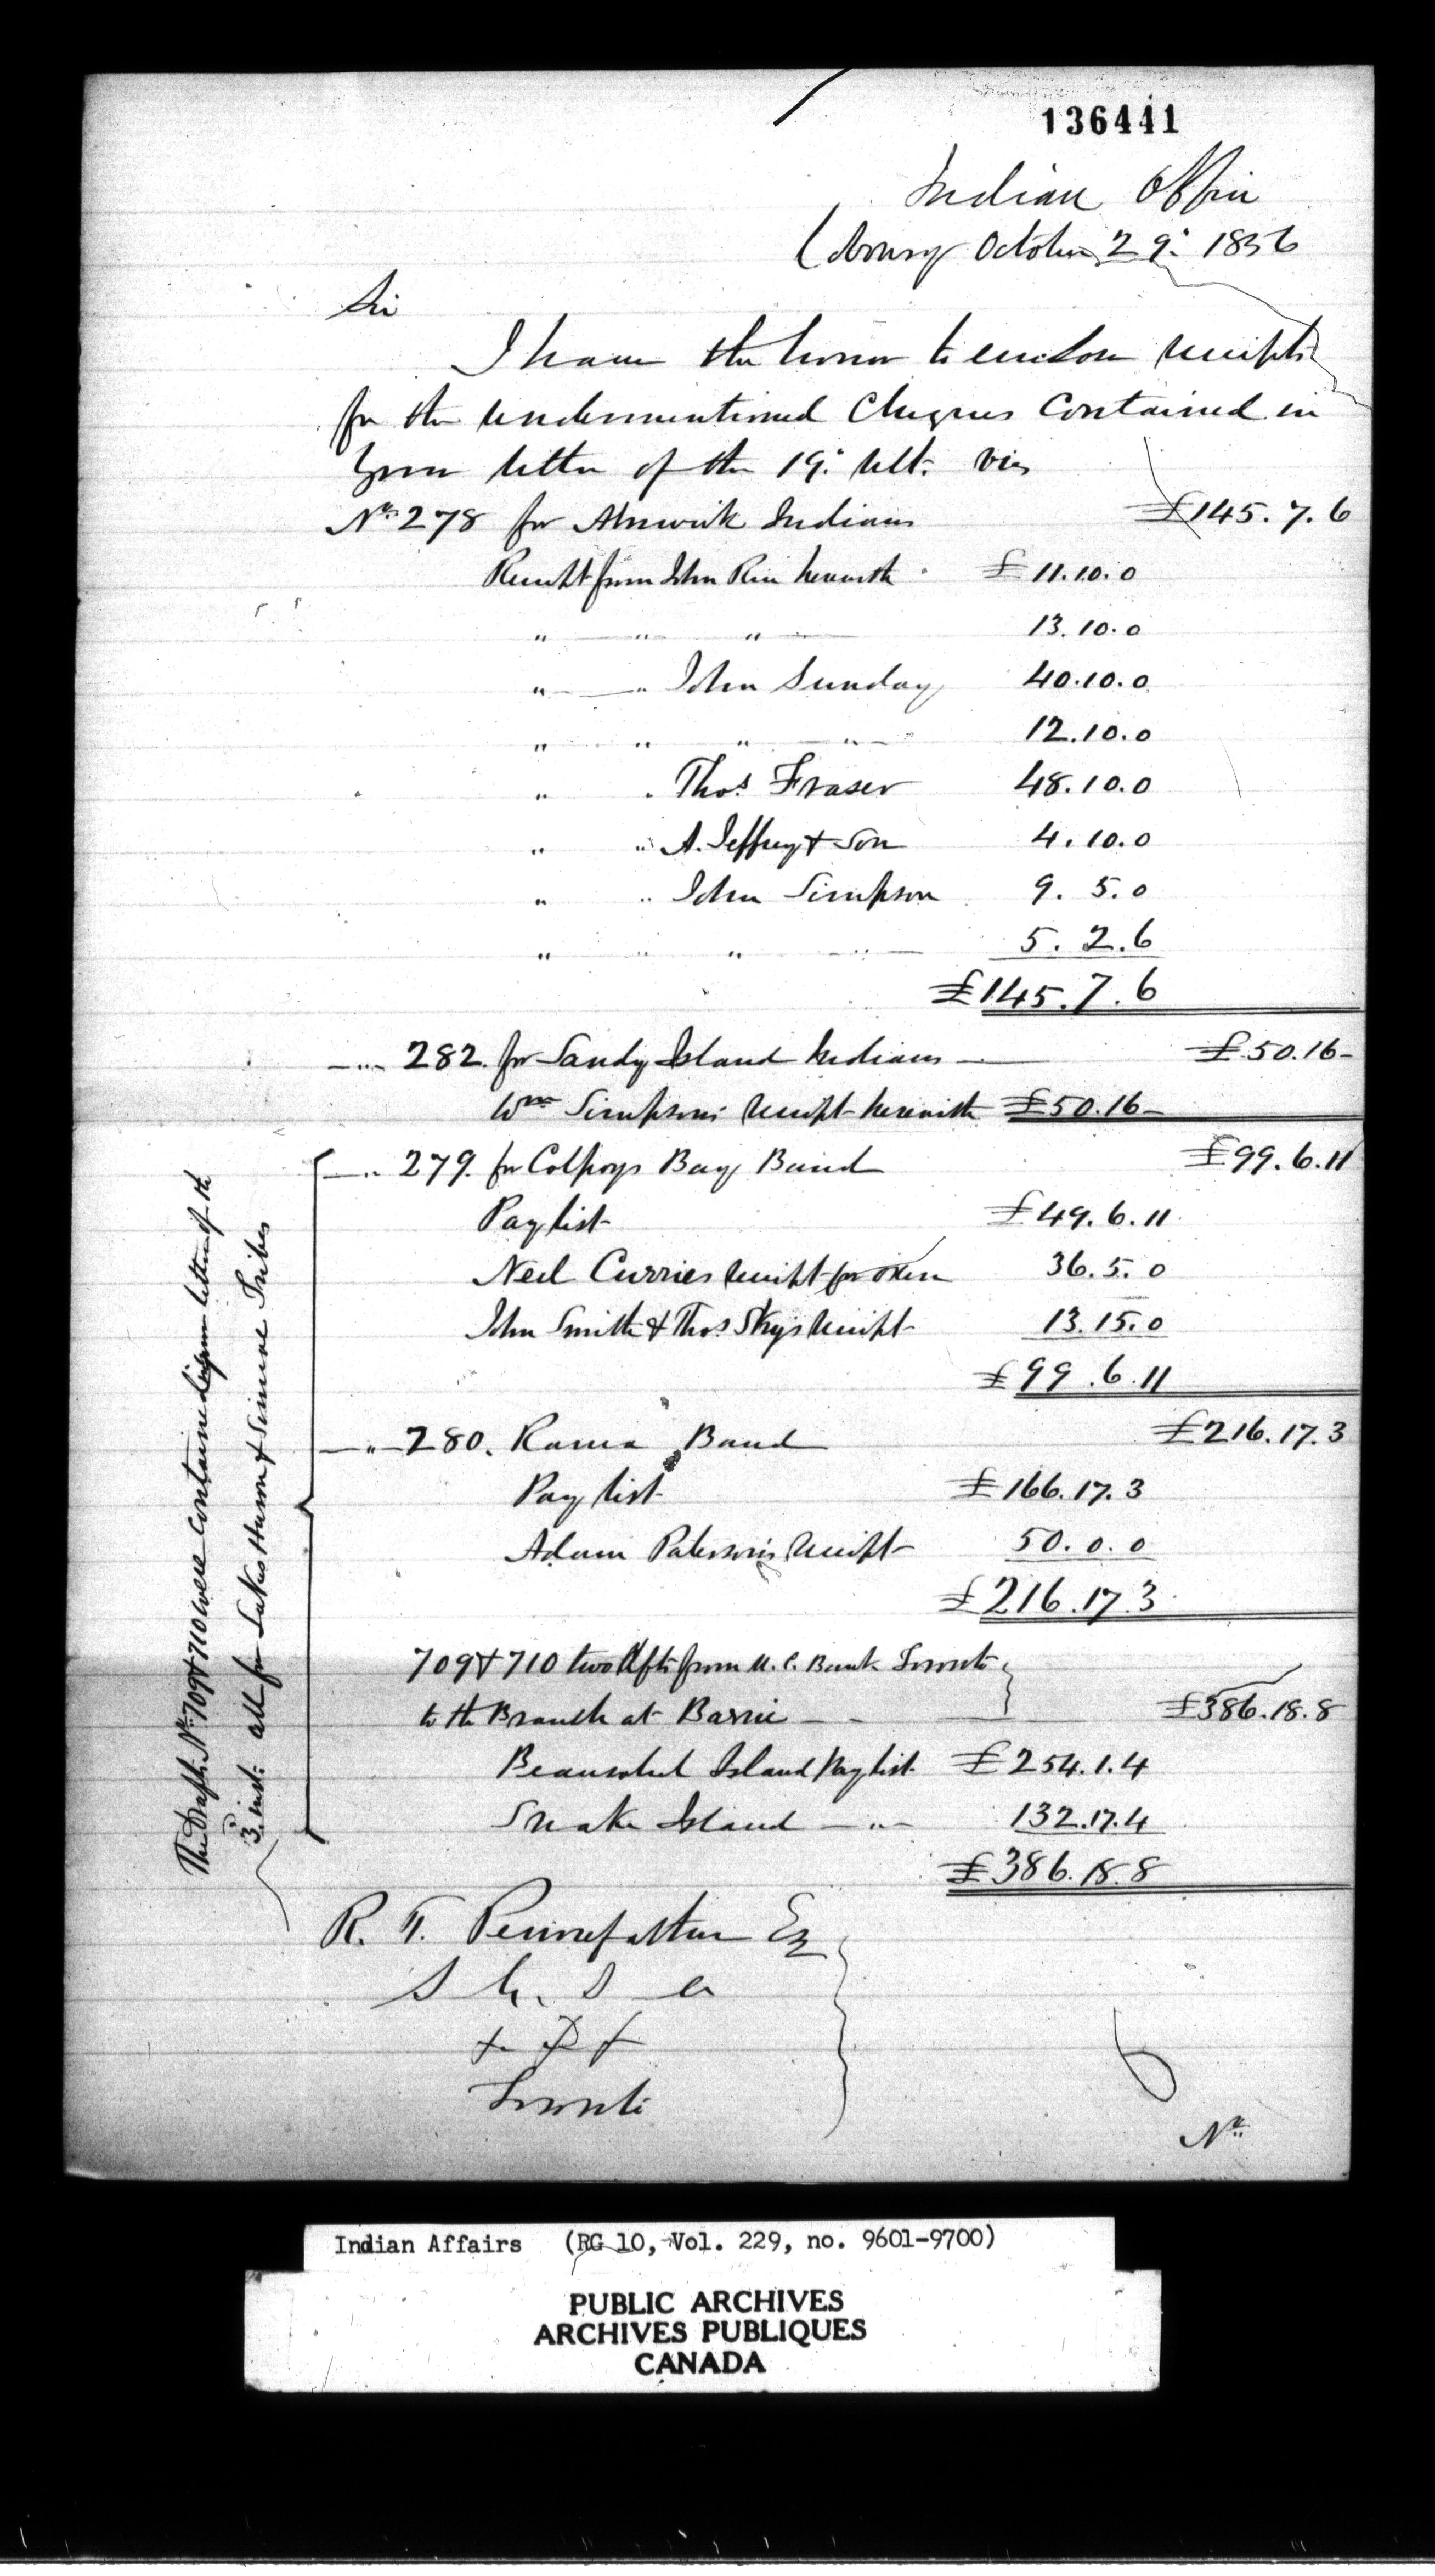 136441
Indian Office
Cobourg October 29: 1856
Sir
I have the honor to enclose receipts
for the undermentioned Cheques contained in
your letter of the 19: ult: viz
No. 278 for Alnwick Indians £145.7.6
Receipt from John Rice herewith £11.10.0
" " " 13.10.0
" " John Sunday 40.10.0
" " " " 12.10.0
" " Thos Fraser 48.10.0
" " A. Jeffrey & Son 4.10.0
" " John Simpson 9.5.0
" " " " 5.2.6
£145.7.6
— " — 282. for Sandy Island Indians — £50.16–
Wm Simpson's receipt herewith £50.16–
— " 279. for Colpoys Bay Band £99.6.11
Pay list £49.6.11
Neil Curries receipt for oxen 36.5.0
John Smith & Thos Sky's receipt 13.15.0
£99.6.11
— " — 280. Rama Band £216.17.3
Pay list £166.17.3
Adam Paterson's receipt 50.0.0
£216.17.3
709 & 710 two dfts from U.C. Bank Toronto
to the Branch at Barrie — - £386.18.8
Beausoleil Island Pay list £254.1.4
Snake Island — " — 132.17.4
£386.18.8
The Drafts Nos 709 & 710 were contained in your letter of the
3. inst: all for Lakes Huron & Simcoe Tribes
R. T. Pennefather Esq
S G. I A
&c &c &c
Toronto
No.
Indian Affairs (RG 10, Vol. 229, no. 9601-9700)
PUBLIC ARCHIVES
ARCHIVES PUBLIQUES
CANADA